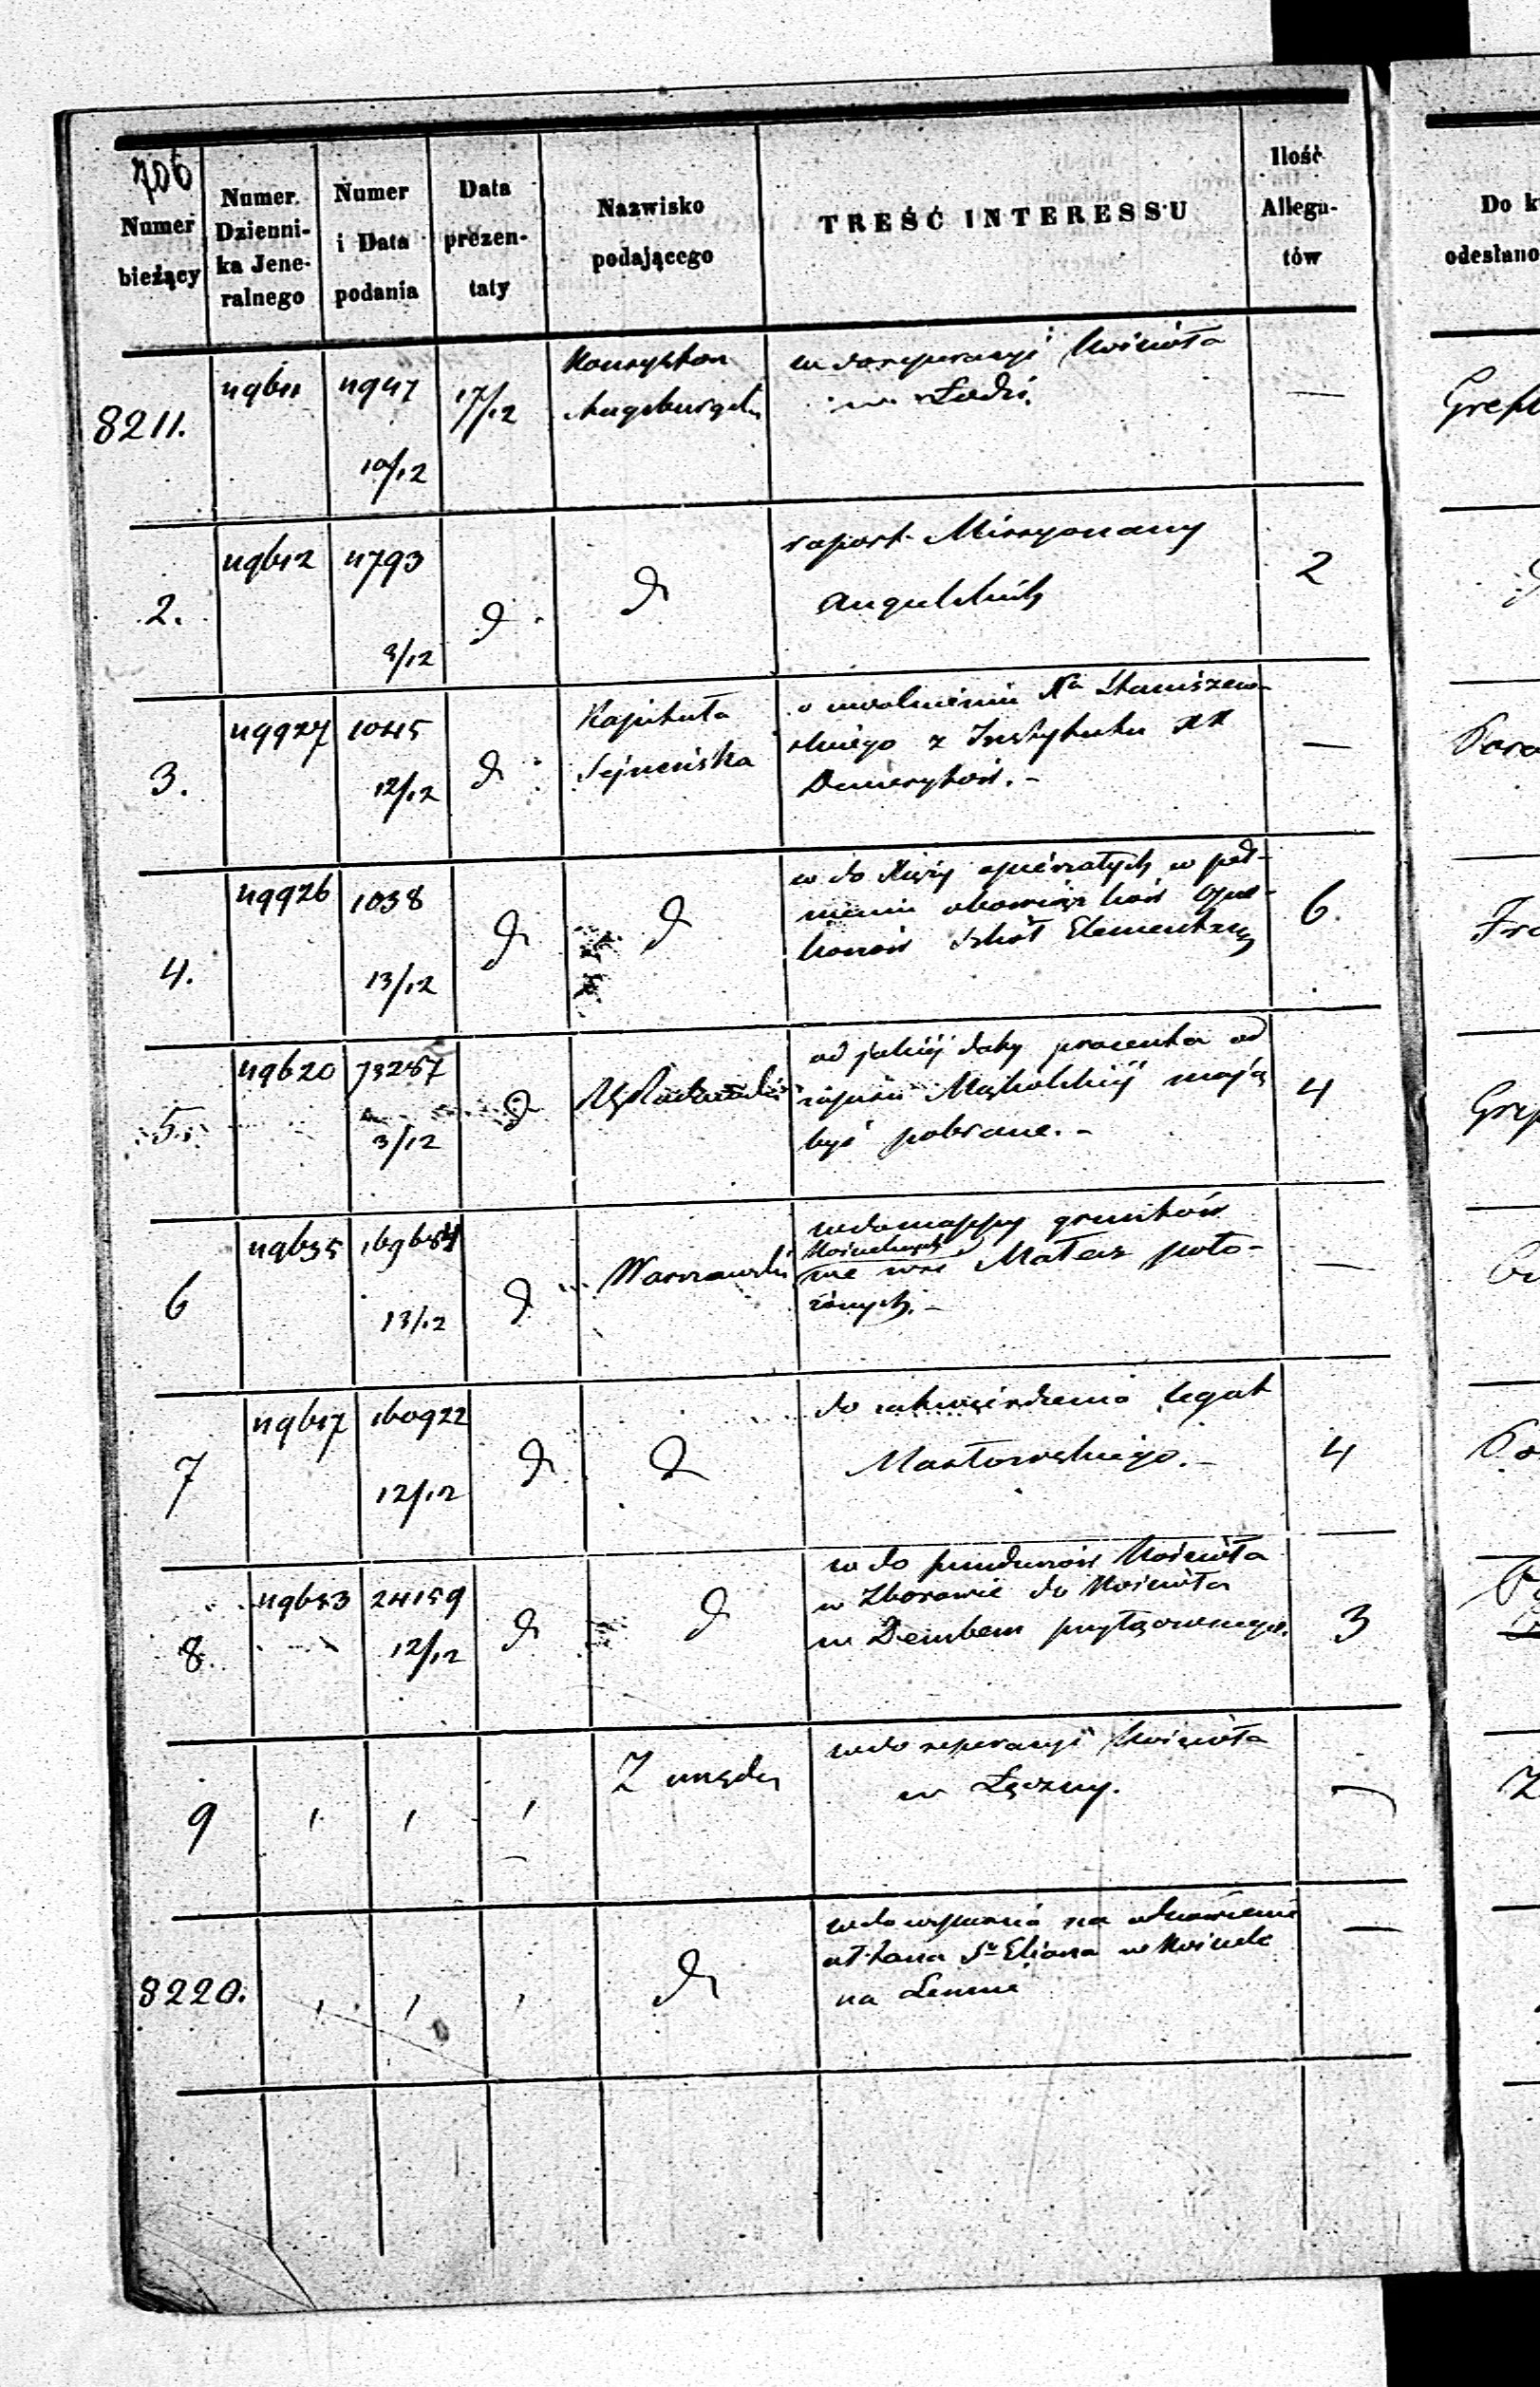 706
Numer bieżący | Numer Dzienni-ka Jene-ralnego | Numer i Data podania | Data prezen-taty | Nazwisko podającego | TREŚĆ INTERESSU | Ilość Allega-tów | Do k
odesłano
8211. | 49611 | 4947 10/12 | 17/12 | Konsystorz | w do reperacyi Kościoła
w Łodzi | —
2. | 49612 | 4793 9/12 | d | d | raport Missyonarzy
angielskich | 2
3. | 49927 | 1045 12/12 | d | Kapituła
Sejneńska | o uwolnieniu Xa Staniszew-
skiego z Instytutu XX
Demerytów. — | —
4. | 49926 | 1038 13/12 | d | d | w do Xięży opieszałych w peł-
nieniu obowiązków Opie-
kunów Szkół Elementarnych | 6.
5. | 49620 | 73257 3/12 | d | od jakiéj daty procenta od
zapisu być pobrane. — | 4
6 | 49635 | 13/12 | d | Warszawski | w do mappy gruntów
Kościelnych
we wsi poło-
żonych. — | —
7 | 49617 | 160922 12/12 | d | d | do zatwierdzenia legat
4
8. | 49653 | 24159 12/12 | d | d | w do funduszów Kościoła
w Zborowie do Kościoła
w Dembem przyłączonego. | 3
9 | Z urzędu | w do reperacyi Kościoła
w Łęczny. | —
8220. | d | w do wsparcia na odnowienie
ołtarza w Kościele
na Lesznie | —